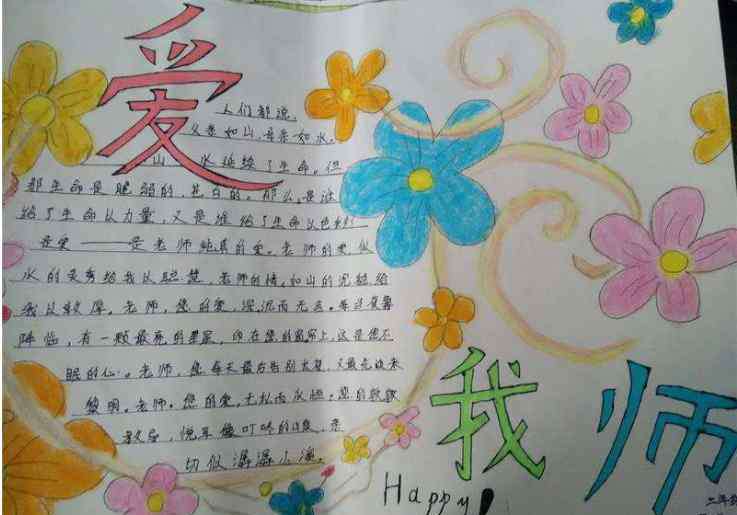 爱
人们都说,
父亲如山,母亲如水,
山 水延续了生命。但
那生命是脆弱的,苍白的。那么,是谁
给了生命以力量,又是谁给了生命以色彩
是爱——是老师纯真的爱。老师的爱,似
水的 给我以 ,老师的情,如山的沉稳给
我以敦厚。老师,您的爱,深沉而无言。每当夜幕
降临,有一颗最亮的星星,印在您的窗帘上,这是您不
眠的心。老师,您每天最后告别太阳,又最先迎来
黎明。老师。您的爱,无私而永恒。您的敦敦
教导,悦耳像叮咚的 ,亲
切似潺潺小溪。
我师
Happy!